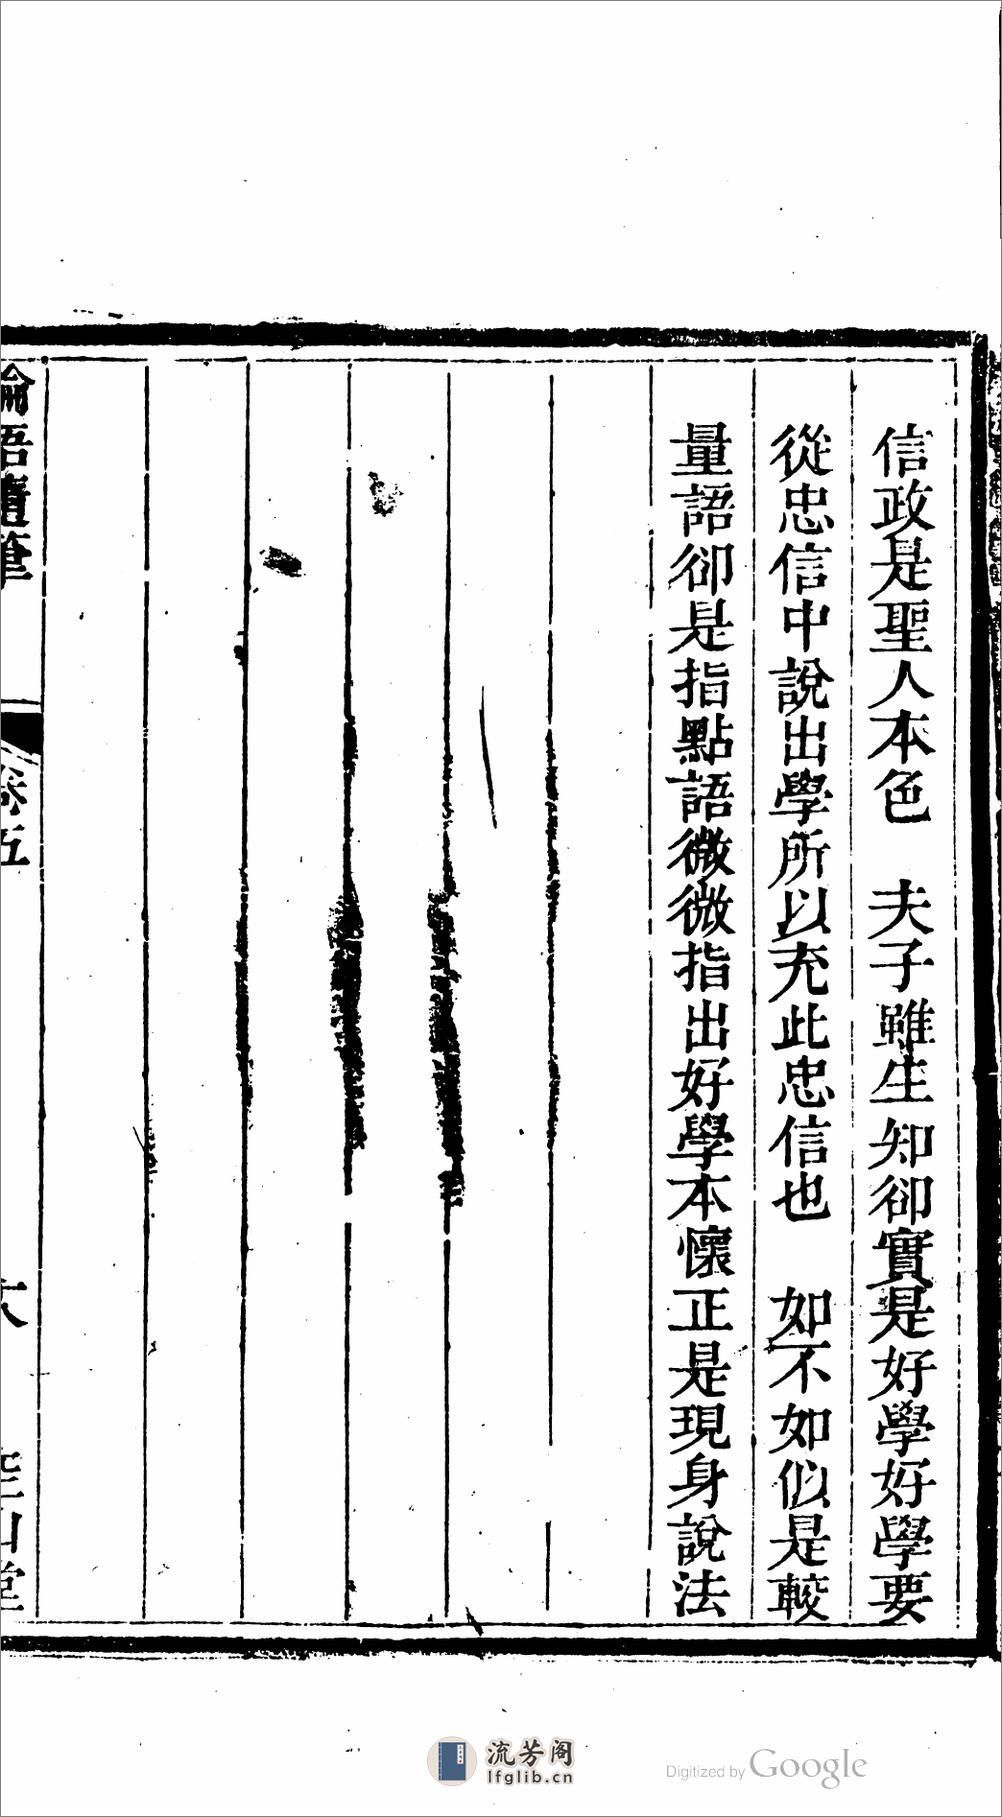 信政是聖人本色　夫子雖生知卻實是好學好學要
從忠信中說出學所以充此忠信也　如不如似是較
量語卻是指點語微微指出好學本懷正是現身說法
論語隨筆
卷五
流芳阁
lfglib.cn
Digitized by Google